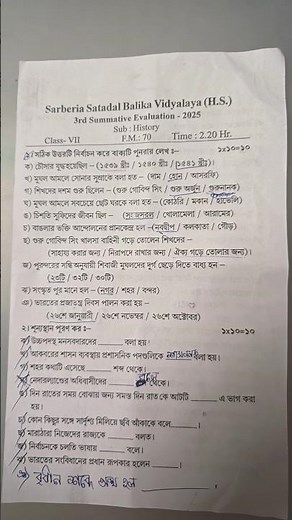 Sarberia Satadal Balika Vidyalaya (H.S.)
3rd Summative Evaluation - 2025
Sub : History
Class- VII F.M.: 70 Time : 2.20 Hr.
১) সঠিক উত্তরটি নির্বাচন করে বাক্যটি পুনরায় লেখ ঃ- ১x১০=১০
ক) চৌসার যুদ্ধ হয়েছিল – (১৫৩৯ খ্রীঃ / ১৫৪০ খ্রীঃ / ১৫৪১ খ্রীঃ)।
খ) মুঘল আমলে সোনার মুদ্রাকে বলা হত – (দাম / হোন / আসরফি)
গ) শিখদের দশম গুরু ছিলেন – (গুরু গোবিন্দ সিং / গুরু অর্জুন / গুরুনানক)
ঘ) মুঘল আমলে সবচেয়ে ছোট ঘরকে বলা হত – (কোঠরি / মকান / হাভেলি)
ঙ) চিশতি সুফিদের জীবন ছিল – (সহজসরল / খোলামেলা / আরামের)
চ) বাঙলার ভক্তি আন্দোলনের প্রাণকেন্দ্র হল – (নবদ্বীপ / কলকাতা / গৌড়)
ছ) গুরু গোবিন্দ সিং খালসা বাহিনী গড়ে তোলেন শিখদের –
(সাহায্য করার জন্য / নিরাপদে রাখার জন্য / ঐক্য গড়ে তোলার জন্য)।
জ) পুরন্দরের সন্ধি অনুযায়ী শিবাজী মুঘলদের দুর্গ ছেড়ে দিতে বাধ্য হন –
(২৩টি / ৩২টি / ৩৩টি)
ঝ) সংস্কৃত পুর মানে হল – (নগর / শহর / বন্দর)
ঞ) ভারতের প্রজাতন্ত্র দিবস পালন করা হয় –
(২৬শে জানুয়ারী / ২৬শে নভেম্বর / ২৬শে অক্টোবর)
২। শূন্যস্থান পূরণ কর ঃ- ১x১০=১০
ক) উচ্চপদস্থ মনসবদারদের ______ বলা হয়।
খ) আকবরের শাসন ব্যবস্থায় প্রশাসনিক পদগুলিকে বলা হয়।
গ) শহর কথাটি এসেছে ______ শব্দ থেকে।
ঘ) নেদারল্যান্ডের অধিবাসীদের থেকে।
ঙ) দিন রাতের সময় বোঝার জন্য সমস্ত দিন রাত কে আটটি ______ এ ভাগ করা
হয়।
চ) কোন কিছুর সঙ্গে সাদৃশ্য মিলিয়ে ছবি আঁকাকে বলে______।
ছ) মারাঠারা নিজেদের রাজ্যকে ______ বলত।
জ) নির্বাচনকে চলতি ভাষায় ______ বলে।
ঝ) ভারতের সংবিধানের প্রধান রূপকার হলেন ______।